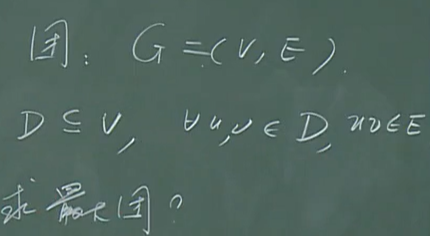 团: G=(V,E).
D⊆V, ∀u,v∈D, uv∈E
求最大团?